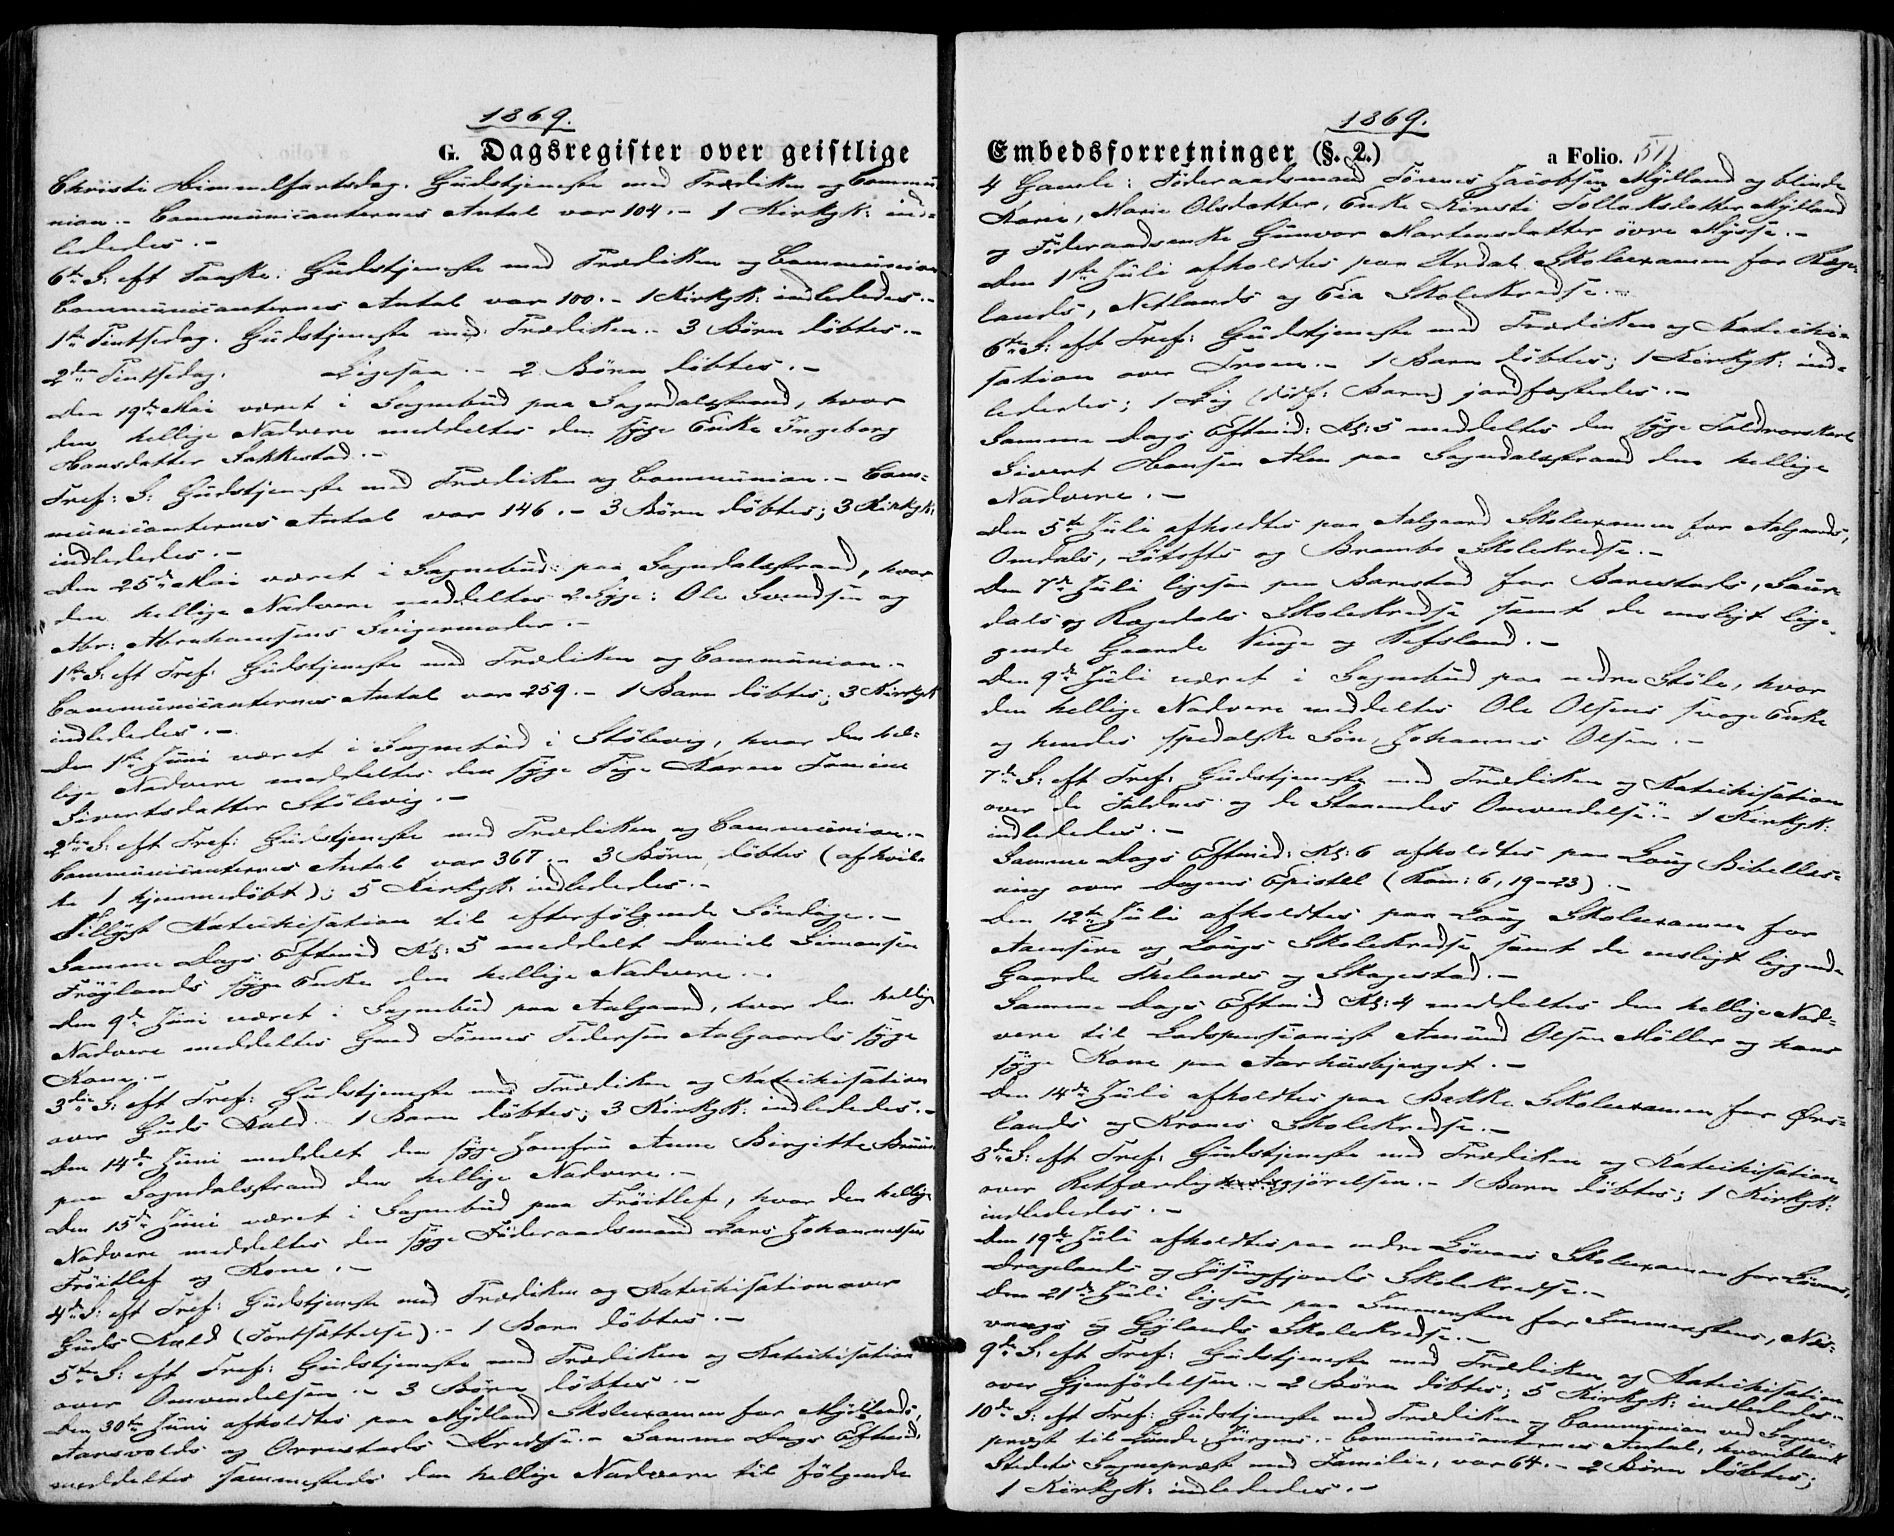 1869.
G. Dagsregister over geistlige
Christi Himmelfartsdag. Gudstjeneste med Prædiken og Commu-
nion.- Communicanternes Antal var 104.- 1 Kirkgk: ind-
lededes.-
6te S: eft Paaske. Gudstjeneste med Prædiken og Communion
Communicanternes Antal var 100.- 1 Kirkgk: indlededes.-
1ste Pintsedag. Gudstjeneste med Prædiken.- 3 Börn döbtes.-
2den Pintsedag. Ligesaa.- 2 Börn döbtes.-
Den 19de Mai været i Sognebud paa Sogndalsstrand, hvor
den hellige Nadvere meddeltes den syge Enke Ingeborg
Hansdatter Bakkestad.-
Tref: S: Gudstjeneste med Prædiken og Communion.- Com-
municanternes Antal var 146.- 3 Börn döbtes; 3 Kirkgk:
indlededes.-
Den 25de Mai været i Sognebud paa Sogndalsstrand, hvor
den hellige Nadvere meddeltes 2 Syge: Ole Svendsen og
Abr: Abrahamsens Svigermoder.-
1ste S: eft Tref: Gudstjeneste med Prædiken og Communion.-
Communicanternes Antal var 259.- 1 Barn döbtes; 3 Kirkgk
indlededes.-
Den 1ste Juni været i Sognebud i Stölevig, hvor den hel-
lige Nadvere meddeltes den syge Pige Karen Tomine
Sivertsdatter Stölevig.-
2den S: eft Tref: Gudstjeneste med Prædiken og Communion.-
Communicanternes Antal var 367.- 3 Börn döbtes (af hvil-
ke 1 hjemmedöbt); 5 Kirkgk: indlededes.-
Tillyst Katechisation til efterfölgende Söndage.-
Samme Dags Eftmid Kl: 5 meddelt Daniel Simonsen
Fröylands syge Enke den hellige Nadvere.-
Den 9de Juni været i Sognebud paa Aalgaard, hvor den hellige
Nadvere meddeltes Gmd Tönnes Pedersen Aalgaards syge
Kone.-
3die S: eft Tref: Gudstjeneste med Prædiken og Katechisation
over Guds Kald. 1 Barn döbtes; 3 Kirkgk: indlededes.-
Den 14de Juni meddelt den syge Jomfru Anne Birgitte Bruun
paa Sogndalsstrand den hellige Nadvere.-
Den 15de Juni været i Sognebud paa Fröitlef, hvor den hellige
Nadvere meddeltes den syge Föderaadsmand Lars Johannessen
Fröitlef og Kone.-
4de S: eft Tref: Gudstjeneste med Prædiken og Katechisation over
Guds Kald (Fortsættelse).- 1 Barn döbtes.-
5te S: eft Tref: Gudstjeneste med Prædiken og Katechisation
over Omvendelsen.- 3 Börn döbtes.-
Den 30te Juni afholdtes paa Mydland Skolexamen for Mydlands
Aarsvolds og Orrestads Kredse.- Samme Dags Eftmid:
meddeltes sammesteds den hellige Nadvere til fölgende
1869.
Embedsforretninger (§. 2.) a Folio. 51)
4 Gamle: Föderaadsmand Tönnes Jacobsen Mydland og blinde
Karie, Marie Olsdatter, Enke Kirsti Tollaksdatter Mydland
og Föderaadsenke Gunvor Martensdatter övre Mysse.-
Den 1ste Juli afholdtes paa Urdal Skolexamen for Rege-
lands, Netlands og Eia Skolekredse.-
6te S: eft Tref: Gudstjeneste med Prædiken og Katechi-
sation over Troen.- 1 Barn döbtes; 1 Kirkgk: ind-
lededes; 1 Lig (dödf: Barn) jordfæstedes.-
Samme Dags Eftmid: Kl: 5 meddeltes den syge Toldrorskarl
Sivert Hansen Alm paa Sogndalsstrand den hellige
Nadvere.-
Den 5te Juli afholdtes paa Aalgaard Skolexamen for Aalgaards,
Omdals, Lötofts og Brambo Skolekredse.-
Den 7de Juli ligesaa paa Barstad for Barestads, Saur-
dals og Regedals Skolekredse samt de ensligt lig-
gende Gaarde Vinge og Refsland.-
Den 9de Juli været i Sognebud paa nedre Stöle, hvor
den hellige Nadvere meddeltes Ole Olsens svage Enke
og hendes spedalske Sön, Johannes Olsen.-
7de S: eft Tref: Gudstjeneste med Prædiken og Katechisation
over de Faldnes og de Staaendes Omvendelse.- 1 Kirkgk:
indlededes.-
Samme Dags Eftmid: Kl: 6 afholdtes paa Loug Bibellæs-
ning over Dagens Epistel (Rom: 6, 19-23).-
Den 12te Juli afholdtes paa Loug Skolexamen for
Aamsere og Lougs Skolekredse samt de ensligt liggende
Gaarde og Skogestad.-
Samme Dags Eftmid Kl: 4 meddeltes den hellige Nad-
vere til Lodspensionist Amund Olsen Möller og hans
syge Kone paa Aarhusbjerget.-
Den 14de Juli afholdtes paa Bakke Skolexamen for Ørs-
lands og Krones Skolekredse.-
8de S: eft Tref: Gudstjeneste med Prædiken og Katechisation
over Retfærdiggjörelsen.- 1 Barn döbtes; 1 Kirkgk:
indlededes.-
Den 19de Juli afholdtes paa nedre Lövaas Skolexamen for Lövaas,
Dragelands og Jösingfjords Skolekredse.-
Den 21de Juli ligesaa paa Immersten for Immerstens, Nes-
vaags og Gylands Skolekredse.-
9de S: eft Tref: Gudstjeneste med Prædiken og Katechisation
over Gjenfödelsen.- 2 Börn döbtes; 5 Kirkgk: indlededes.-
10de S: eft Tref: Gudstjeneste med Prædiken og Communion ved Sogne-
præst til Lunde, Jörgens.- Communicanternes Antal, hvoriblandt
Stedets Sognepræst med Familie, var 64.- 2 Börn döbtes;
1 Kirkgk: indlededes.-